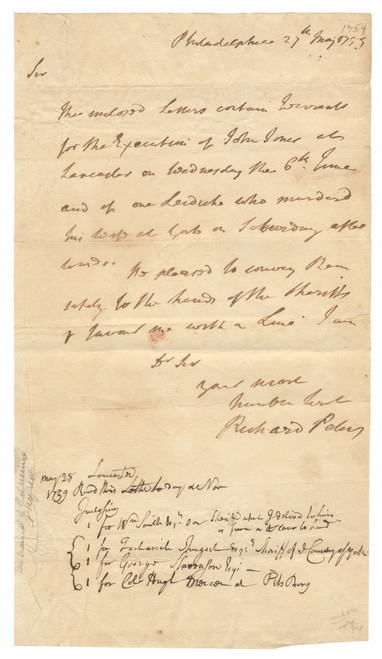 1759
Philadelphia 27th May 1759
Sir
The enclosed Letters contain Warrants
for the Execution of John Jones at
Lancaster on Wednesday the 6th June
and of one who murdered
his Wife at York on Saturday after
wards. Be pleased to convey them
safely to the hands of the Sheriffs
& favour me with a Line I am
Dr Sir
Your most
humble Servt
Richard Peters
May 28 Lancaster
1759 Recd this Letter to day at Noon
Inclosing
1 for Wm Smith Esqr our Sheriff which I delivd to him
1 for Zachariah Esqr Sheriff of ye County of York
1 for George Stevenson Esqr
1 for Coll Hugh Mercer at Pitts Burg